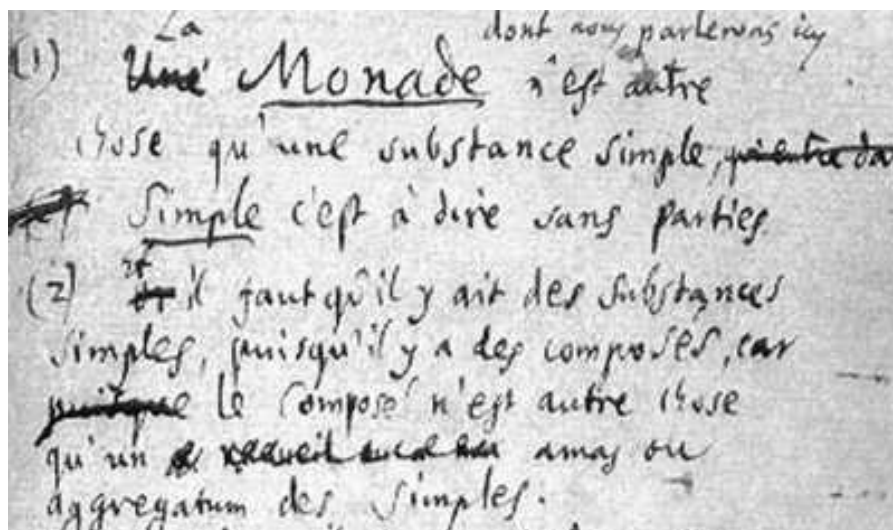 La dont nous parlerons icy
(1) Une Monade n'est autre
chose qu'une substance simple, qui entre da
Simple c'est à dire sans parties
(2) et il faut qu'il y ait des substances
simples, puisqu'il y a des composés, car
puisque le composé n'est autre chose
qu'un recueil amas ou
aggregatum des simples.